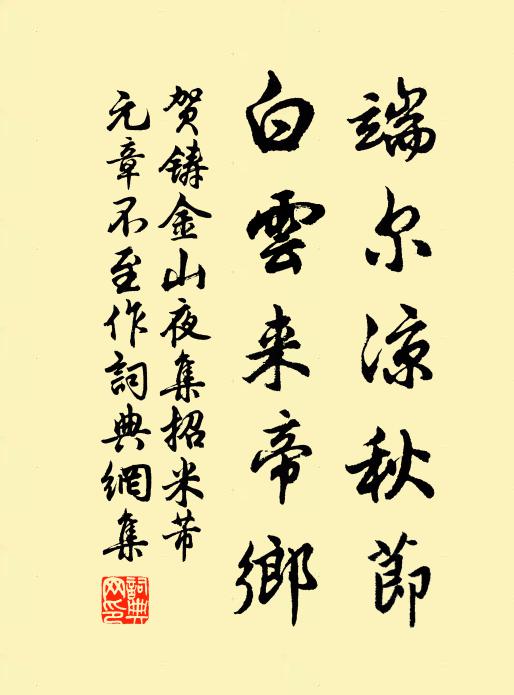 端尔凉秋節
白雲来帝鄉
贺鑄金山夜集招米芾
元章不至作詞典網集
詞典網印